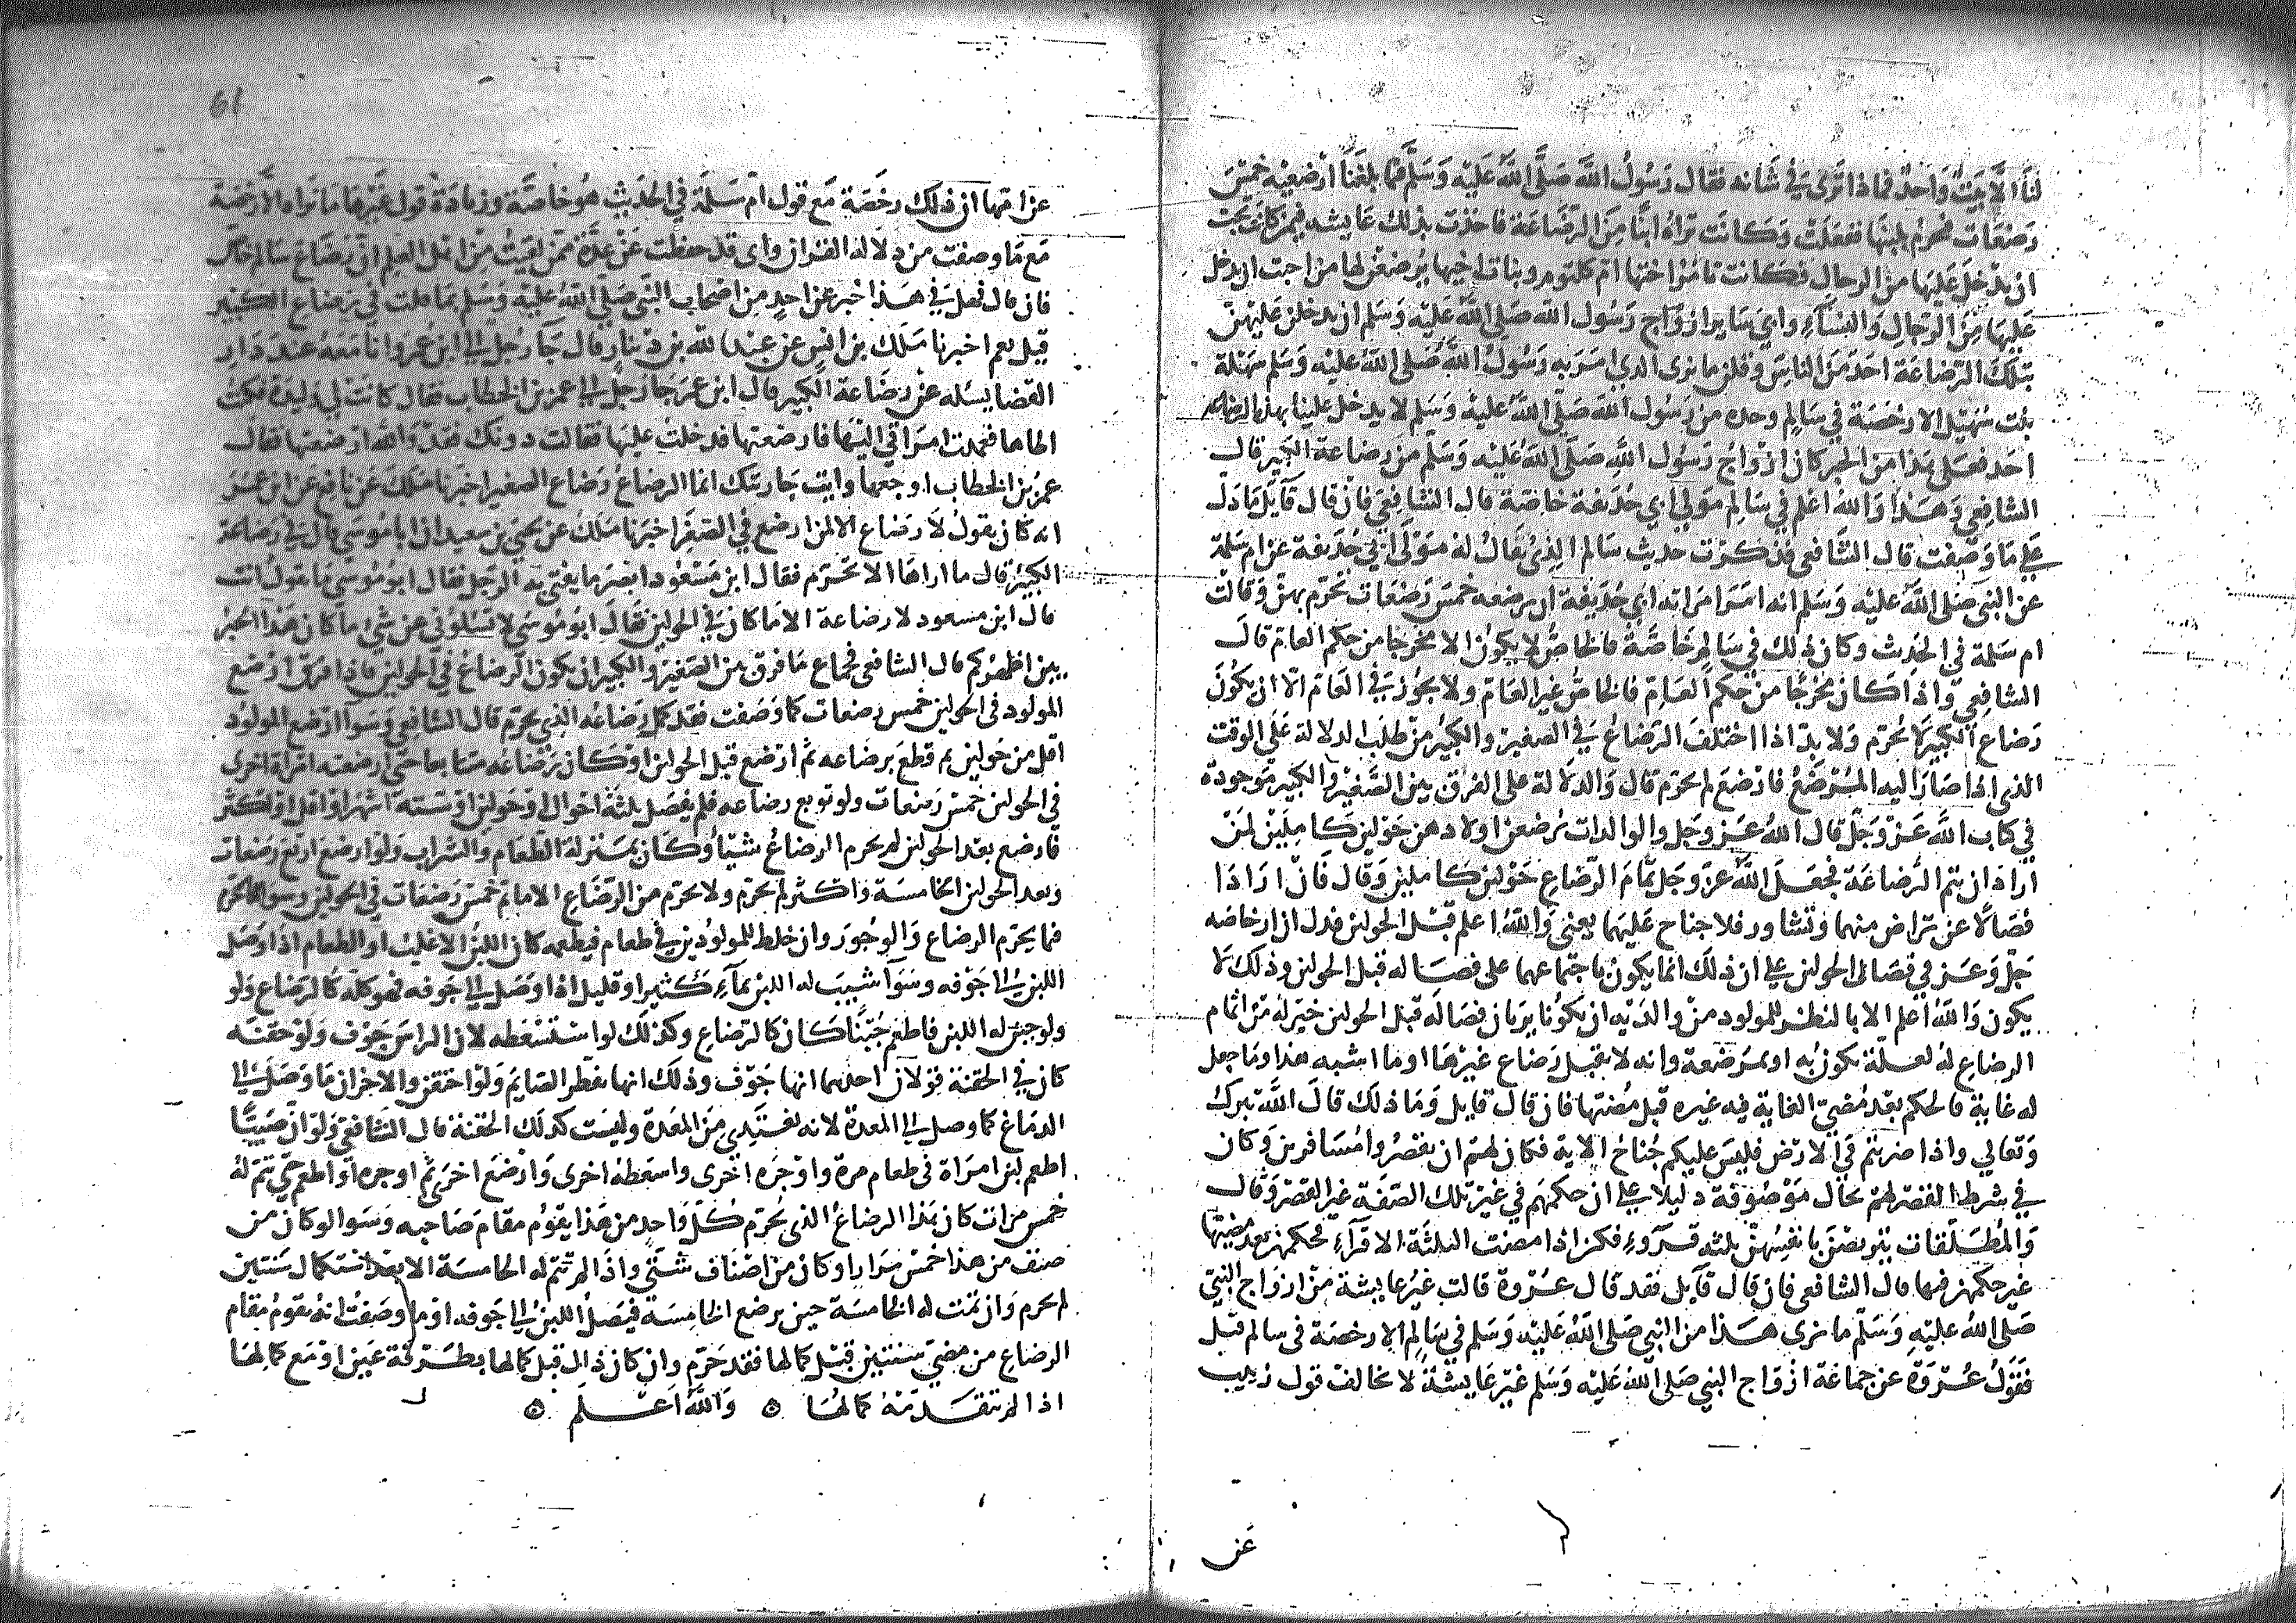 لنا الا بيت واحد فماذا ترى في شانه فقال رسول الله صلى الله عليه وسلم فيما بلغنا ارضعيه خمس
رضعات فيحرم بلبنها ففعلت وكانت تراه ابنا من الرضاعة فاخذت بذلك عايشه فيمن كانت تحب
ان يدخل عليها من الرجال فكانت تامر اختها ام كلثوم وبنات اخيها يرضعن لها من احبت ان يدخل
عليها من الرجال والنسآء وابى ساير ازواج رسول الله صلى الله عليه وسلم ان يدخلن عليهن
بتلك الرضاعة احد من الناس وقلن ما نرى الذي امر به رسول الله صلى الله عليه وسلم سهلة
بنت سهيل الا رخصة في سالم وحده من رسول الله صلى الله عليه وسلم لا يدخل علينا بهذه الرضاعه
احد فعلى هذا من الخبر كان ازواج رسول الله صلى الله عليه وسلم من رضاعة الكبير قال
الشافعي وهذا والله اعلم في سالم مولى ابي حذيفة خاصة قال الشافعي فان قال قآيل ما دل
على ما وصفت قال الشافعي فذكرت حديث سالم الذي يقال له مولى ابي حذيفة عن ام سلمة
عن النبي صلى الله عليه وسلم انه امر امراته ابي حذيفة ان يرضعه خمس رضعات تحرم بهن وقالت
ام سلمة في الحديث وكان ذلك في سالم خاصة فالخاص لا يكون الا مخرجا من حكم العام قال
الشافعي واذا كان مخرجا من حكم العام فالخاص غير العام ولا يجوز في العام الا ان يكون
رضاع الكبير لا يحرم ولا بد اذا اختلف الرضاع في الصغير والكبير من طلب الدلالة على الوقت
الذي اذا صار اليه المرضع فارضع لم يحرم قال والدلالة على الفرق بين الصغير والكبير موجودة
في كتاب الله عز وجل قال الله عز وجل والوالدات يرضعن اولادهن حولين كاملين لمن
اراد ان يتم الرضاعة فجعل الله عز وجل تمام الرضاع حولين كاملين وقال فان ارادا
فصالا عن تراض منهما وتشاور فلا جناح عليهما يعني والله اعلم قبل الحولين فدل ان ارخاصه
جل وعز في فصال الحولين على ان ذلك انما يكون باجتماعهما على فصاله قبل الحولين وذلك لا
يكون والله اعلم الا بالنظر للمولود من والديه ان يكونا يريان فصاله قبل الحولين خير له من اتمام
الرضاع له لعلة تكون به او بمرضعة وانه لا يقبل رضاع غيرها او ما اشبه هذا وما جعل
له غاية فالحكم بعد مضي الغاية فيه غيره قبل مضيها فان قال قايل وما ذلك قال الله تبرك
وتعالى واذا ضربتم في الارض فليس عليكم جناح الاية فكان لهم ان يقصروا مسافرين وكان
في شرط القصر لهم بحال موصوفة دليلا على ان حكمهم في غير تلك الصفة غير القصر وقال
والمطلقات يتربصن بانفسهن ثلثه قروء فكن اذا مضت الثلثة الاقرآء فحكمهن بعد مضيها
غير حكمهن فيها قال الشافعي فان قال قآيل فقد قال عروة قالت غير عايشة من ازواج النبي
صلى الله عليه وسلم ما نرى هذا من النبي صلى الله عليه وسلم في سالم الا رخصة في سالم قيل
فقول عروة عن جماعة ازواج النبي صلى الله عليه وسلم غير عايشة لا تخالف قول زينب
عن
61
عن امها ان ذلك رخصة مع قول ام سلمة في الحديث هو خاصة وزيادة قول غيرها ما نراه الا رخصة
مع ما وصفت من دلالة القران واى قد حفظت عن عدة ممن لقيت من اهل العلم ان رضاع سالم خاص
فان قال فهل في هذا خبر عن احد من اصحاب النبي صلى الله عليه وسلم بما قلت في رضاع الكبير
قيل نعم اخبرنا ملك بن انس عن عبد الله بن دينار قال جآ رجل الى ابن عمر وانا معه عند دار
القضا يسئله عن رضاعة الكبير قال ابن عمر جا رجل الى عمر بن الخطاب فقال كانت لي وليدة فكنت
اطاها فعمدت امراتي اليها فارضعتها فدخلت عليها فقالت دونك فقد والله ارضعتها فقال
عمر بن الخطاب اوجعها وايت جاريتك انما الرضاع رضاع الصغير اخبرنا ملك عن نافع عن ابن عمر
انه كان يقول لا رضاع الا لمن ارضع في الصغر اخبرنا ملك عن يحيى بن سعيد ان ابا موسى قال في رضاعة
الكبير قال ما اراها الا تحرم فقال ابن مسعود ابصر ما يفتى به الرجل فقال ابو موسى ما تقول انت
قال ابن مسعود لا رضاعة الا ما كان في الحولين فقال ابو موسى لا تسئلوني عن شئ ما كان هذا الحبر
بين اظهركم قال الشافعي فجماع ما فرق بين الصغير والكبير ان يكون الرضاع في الحولين فاذا ارضع
المولود في الحولين خمس رضعات كما وصفت فقد كمل رضاعه الذي يحرم قال الشافعي وسوآ ارضع المولود
اقل من حولين ثم قطع رضاعه ثم ارضع قبل الحولين او كان رضاعه متتابعا حتى ارضعته امراة اخرى
في الحولين خمس رضعات ولو توبع رضاعه فلم يفصل ثلثة احوال او حولين او ستة اشهر او اقل او اكثر
فارضع بعد الحولين لم يحرم الرضاع شيئا وكان بمنزلة الطعام والشراب ولو ارضع اربع رضعات
وبعد الحولين الخامسة واكثر لم يحرم ولا يحرم من الرضاع الا ما تم خمس رضعات في الحولين وسوا
فما يحرم الرضاع والوجور وان خلط للمولود لبن في طعام فيطعمه كان اللبن الاغلب او الطعام اذا وصل
اللبن الى جوفه وسوآ شيب له اللبن بمآء كثير او قليل اذا وصل الى جوفه فهو كله كالرضاع ولو
ولو جبن له اللبن فاطعم جبنا كان كالرضاع وكذلك لو استسعطه لان الراس جوف ولو حقنه
كان في الحقنة قولان احدهما انها جوف وذلك انها تفطر الصايم ولو احتقن والاخر ان ما وصل الى
الدماغ كما وصل الى المعدة لانه يغتذي من المعدة وليست كذلك الحقنة قال الشافعي ولو ان صبيا
اطعم لبن امراة في طعام مرة واوجره اخرى واسعطه اخرى وارضع اخرى ثم اوجره او اطعم حتى تتم له
خمس مرات كان هذا الرضاع الذي يحرم كل واحد من هذا يقوم مقام صاحبه وسوا لو كان من
صنف من هذا خمس مرار او كان من اصناف شتى واذا لم تتم له الخامسة الا بعد استكمال سنتين
لم يحرم وان تمت له الخامسة حين يرضع الخامسة فيصل اللبن الى جوفه او ما وصفت انه يقوم مقام
الرضاع من مضي سنتين قبل كمالها فقد حرم وان كان ذلك قبل كمالها بطرفة عين او مع كمالها
اذا لم تتقدمه كمالها ه والله اعلم ه